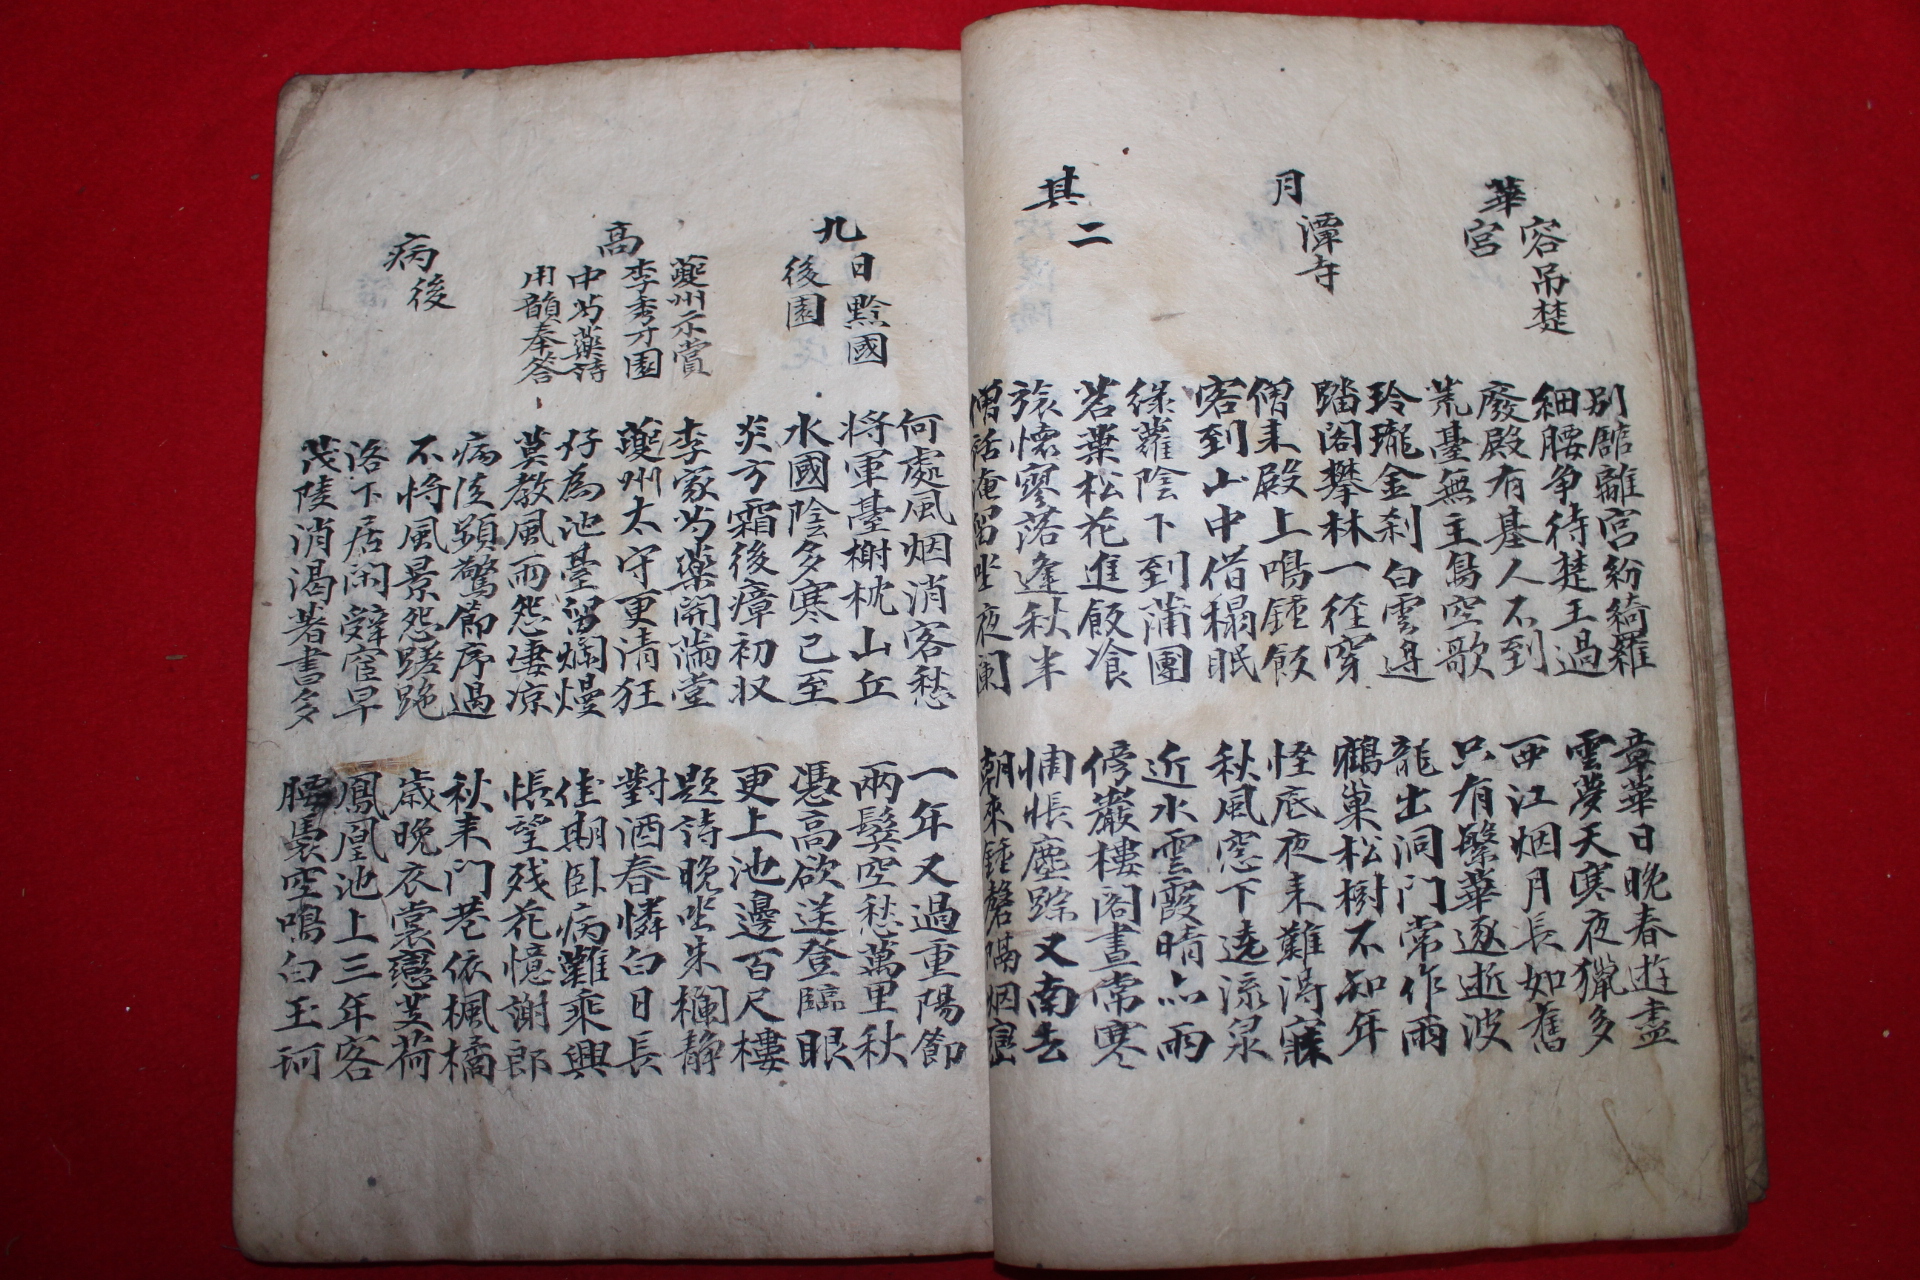 華容吊楚
宮
別館離宮紛綺羅
章華日晚春遊盡
細腰争待楚王過
雲夢天寒夜獵多
廢殿有基人不到
西江烟月長如舊
荒臺無主鳥空歌
只有繁華逐逝波
月潭寺
玲瓏金刹白雲邊
龍出洞門常作雨
踏閣攀林一徑穿
鶴巢松樹不知年
僧来殿上鳴鍾飯
怪底夜来難得寐
客到山中借榻眠
秋風窓下遶流泉
其二
綠蘿陰下到蒲團
近水雲霞晴亦雨
茗葉松花進飯飡
傍巖樓閣晝常寒
旅懷寥落逢秋半
惆悵塵踪又南去
僧話淹留坐夜闌
朝來鍾磬隔烟巒
九日黔國
後園
何處風烟消客愁
一年又過重陽節
將軍臺榭枕山丘
兩鬂空愁萬里秋
水國陰多寒已至
憑高欲送登臨眼
炎方霜後瘴初収
更上池邊百尺樓
高
夔州示賞
李秀才園
中芍藥詩
用韻奉答
李家芍藥開滿堂
題詩晚坐朱欄静
夔州太守更清狂
對酒春憐白日長
好為池臺留爛熳
佳期臥病難乘興
莫教風雨怨凄凉
悵望残花憶謝郎
病後
病後頻驚節序過
秋来門巷依楓橘
不将風景怨蹉跎
歳晚衣裳戀芰荷
洛下居閑辤官早
鳳凰池上三年客
茂陵消渴著書多
腰褭空鳴白玉珂